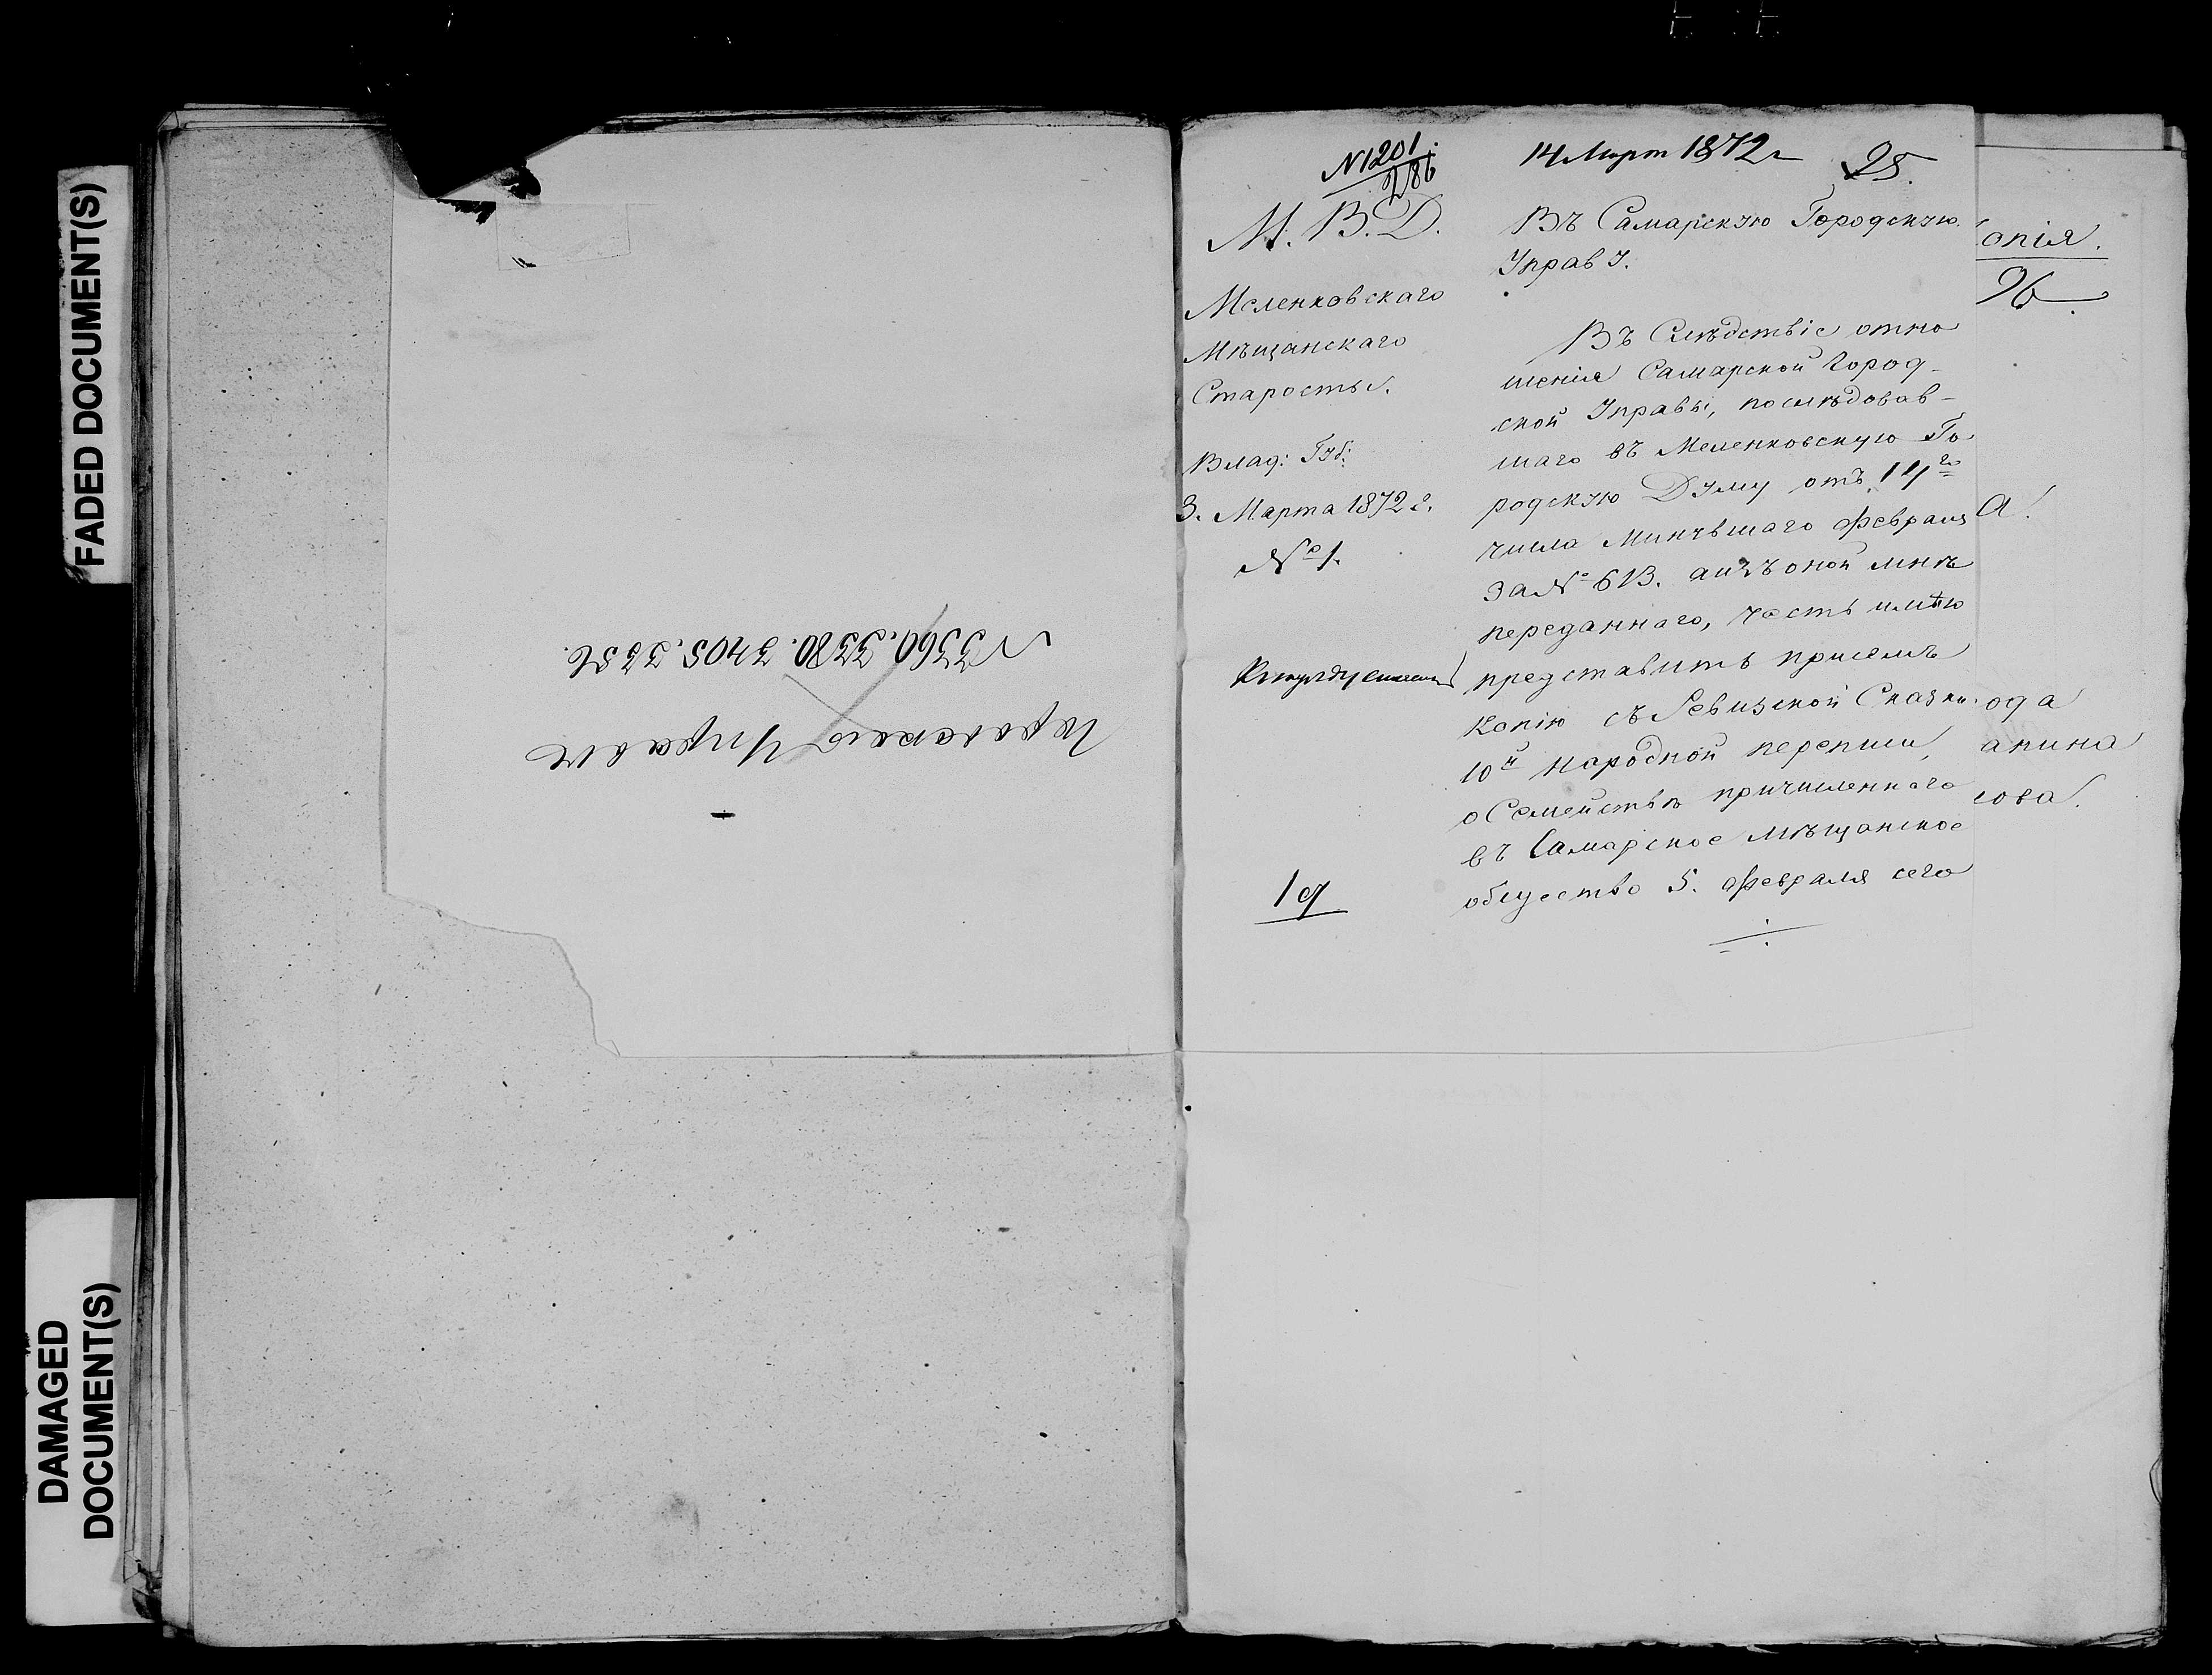 FADED DOCUMENT(S)
DAMAGED
DOCUMENT(S)
Управы
N 3360. 3380. 3405. 3356.
N1201.
286
14 Март 1872 г
25.
М. В. Д.
Меленковскаго
Мѣщанскаго
Старосты.
Влад: Губ:
3. Марта 1872 г.
№ 1.
19
Въ Самарскую Городскую
Управу.
Въ Слѣдствіе отно
шенія Самарской Город-
ской Управы, послѣдовав-
шаго въ Меленковскую Го
родскую Думу отъ 14го
числа Минувшаго февраля
за № 613. а изъ оной мнѣ
переданнаго, честь имѣю
представить присемъ
Копію съ Ревизской Сказки
10й народной переписи,
о Семействѣ причисленнаго
въ Самарское мѣщанское
общество 5. февраля сего
опія.
26
а.
ода
анина
сова.